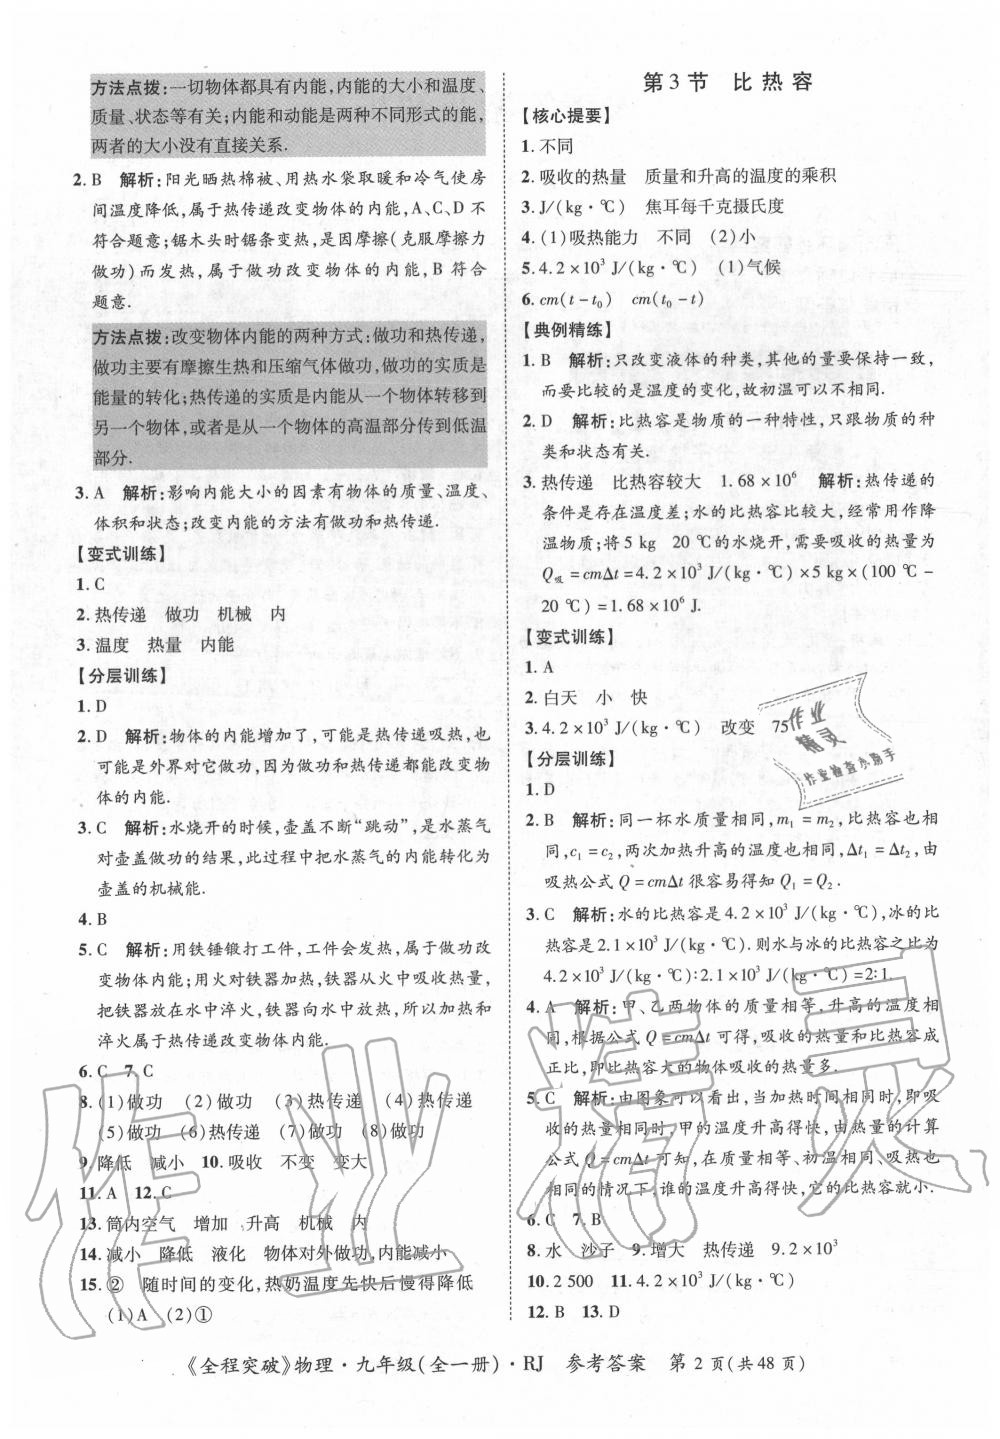 方法点拨:一切物体都具有内能,内能的大小和温度、
质量、状态等有关;内能和动能是两种不同形式的能,
两者的大小没有直接关系.
2. B 解析:阳光晒热棉被、用热水袋取暖和冷气使房
间温度降低,属于热传递改变物体的内能,A、C、D 不
符合题意;锯木头时锯条变热,是因摩擦(克服摩擦力
做功)而发热,属于做功改变物体的内能,B 符合
题意.
方法点拨:改变物体内能的两种方式:做功和热传递,
做功主要有摩擦生热和压缩气体做功,做功的实质是
能量的转化;热传递的实质是内能从一个物体转移到
另一个物体,或者是从一个物体的高温部分传到低温
部分.
3. A 解析:影响内能大小的因素有物体的质量、温度、
体积和状态;改变内能的方法有做功和热传递.
【变式训练】
1. C
2. 热传递 做功 机械 内
3. 温度 热量 内能
【分层训练】
1. D
2. D 解析:物体的内能增加了,可能是热传递吸热,也
可能是外界对它做功,因为做功和热传递都能改变物
体的内能.
3. C 解析:水烧开的时候,壶盖不断“跳动”,是水蒸气
对壶盖做功的结果,此过程中把水蒸气的内能转化为
壶盖的机械能.
4. B
5. C 解析:用铁锤锻打工件,工件会发热,属于做功改
变物体内能;用火对铁器加热,铁器从火中吸收热量,
把铁器放在水中淬火,铁器向水中放热,所以加热和
淬火属于热传递改变物体内能.
6. C 7. C
8. (1)做功 (2)做功 (3)热传递 (4)热传递
(5)做功 (6)热传递 (7)做功 (8)做功
9. 降低 减小 10. 吸收 不变 变大
11. A 12. C
13. 筒内空气 增加 升高 机械 内
14. 减小 降低 液化 物体对外做功,内能减小
15. ② 随时间的变化,热奶温度先快后慢得降低
(1)A (2)①
第 3 节 比热容
【核心提要】
1. 不同
2. 吸收的热量 质量和升高的温度的乘积
3. J/(kg·℃) 焦耳每千克摄氏度
4. (1)吸热能力 不同 (2)小
5. 4.2×10³ J/(kg·℃) (1)气候
6. cm(t-t₀) cm(t₀-t)
【典例精练】
1. B 解析:只改变液体的种类,其他的量要保持一致,
而要比较的是温度的变化,故初温可以不相同.
2. D 解析:比热容是物质的一种特性,只跟物质的种
类和状态有关.
3. 热传递 比热容较大 1.68×10⁶ 解析:热传递的
条件是存在温度差;水的比热容比较大,经常用作降
温物质;将5 kg 20 ℃的水烧开,需要吸收的热量为
Q吸=cmΔt=4.2×10³ J/(kg·℃)×5 kg×(100 ℃-
20 ℃)=1.68×10⁶ J.
【变式训练】
1. A
2. 白天 小 快
3. 4.2×10³ J/(kg·℃) 改变 75
作业
精灵
作业检查小助手
【分层训练】
1. D
2. B 解析:同一杯水质量相同,m₁=m₂,比热容也相
同,c₁=c₂,两次加热升高的温度也相同,Δt₁=Δt₂,由
吸热公式 Q=cmΔt 很容易得知 Q₁=Q₂.
3. C 解析:水的比热容是4.2×10³ J/(kg·℃),冰的比
热容是2.1×10³ J/(kg·℃).则水与冰的比热容之比为
4.2×10³ J/(kg·℃):2.1×10³ J/(kg·℃)=2:1.
4. A 解析:甲、乙两物体的质量相等,升高的温度相
同,根据公式 Q=cmΔt 可得,吸收的热量和比热容成
正比,即比热容大的物体吸收的热量多.
5. C 解析:由图象可以看出,当加热时间相同时,即吸
收的热量相同时,甲的温度升高得快,由热量的计算
公式 Q=cmΔt 可知,在质量相等、初温和吸收热量也
相同的情况下,谁的温度升高得快,它的比热容就小.
6. C 7. B
8. 水 沙子 9. 增大 热传递 9.2×10³
10. 2 500 11. 4.2×10³ J/(kg·℃)
12. B 13. D
作业精灵
《全程突破》物理·九年级(全一册)·RJ 参考答案 第 2 页(共48 页)